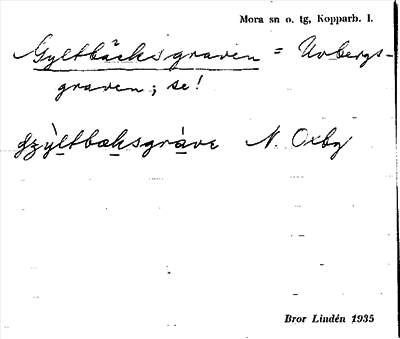 Mora sn o. tg, Kopparb. l.
Gyltbäcksgraven = Uvbergs-
graven; se!
gzỳltbæksgràve N. Oxbg
Bror Lindén 1935